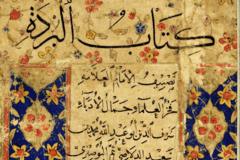 كتاب البردة
تصنيف الإمام العلامة
فخر العلماء وجمال الأدباء
شرف الدين أبو عبد الله محمد بن
سعيد